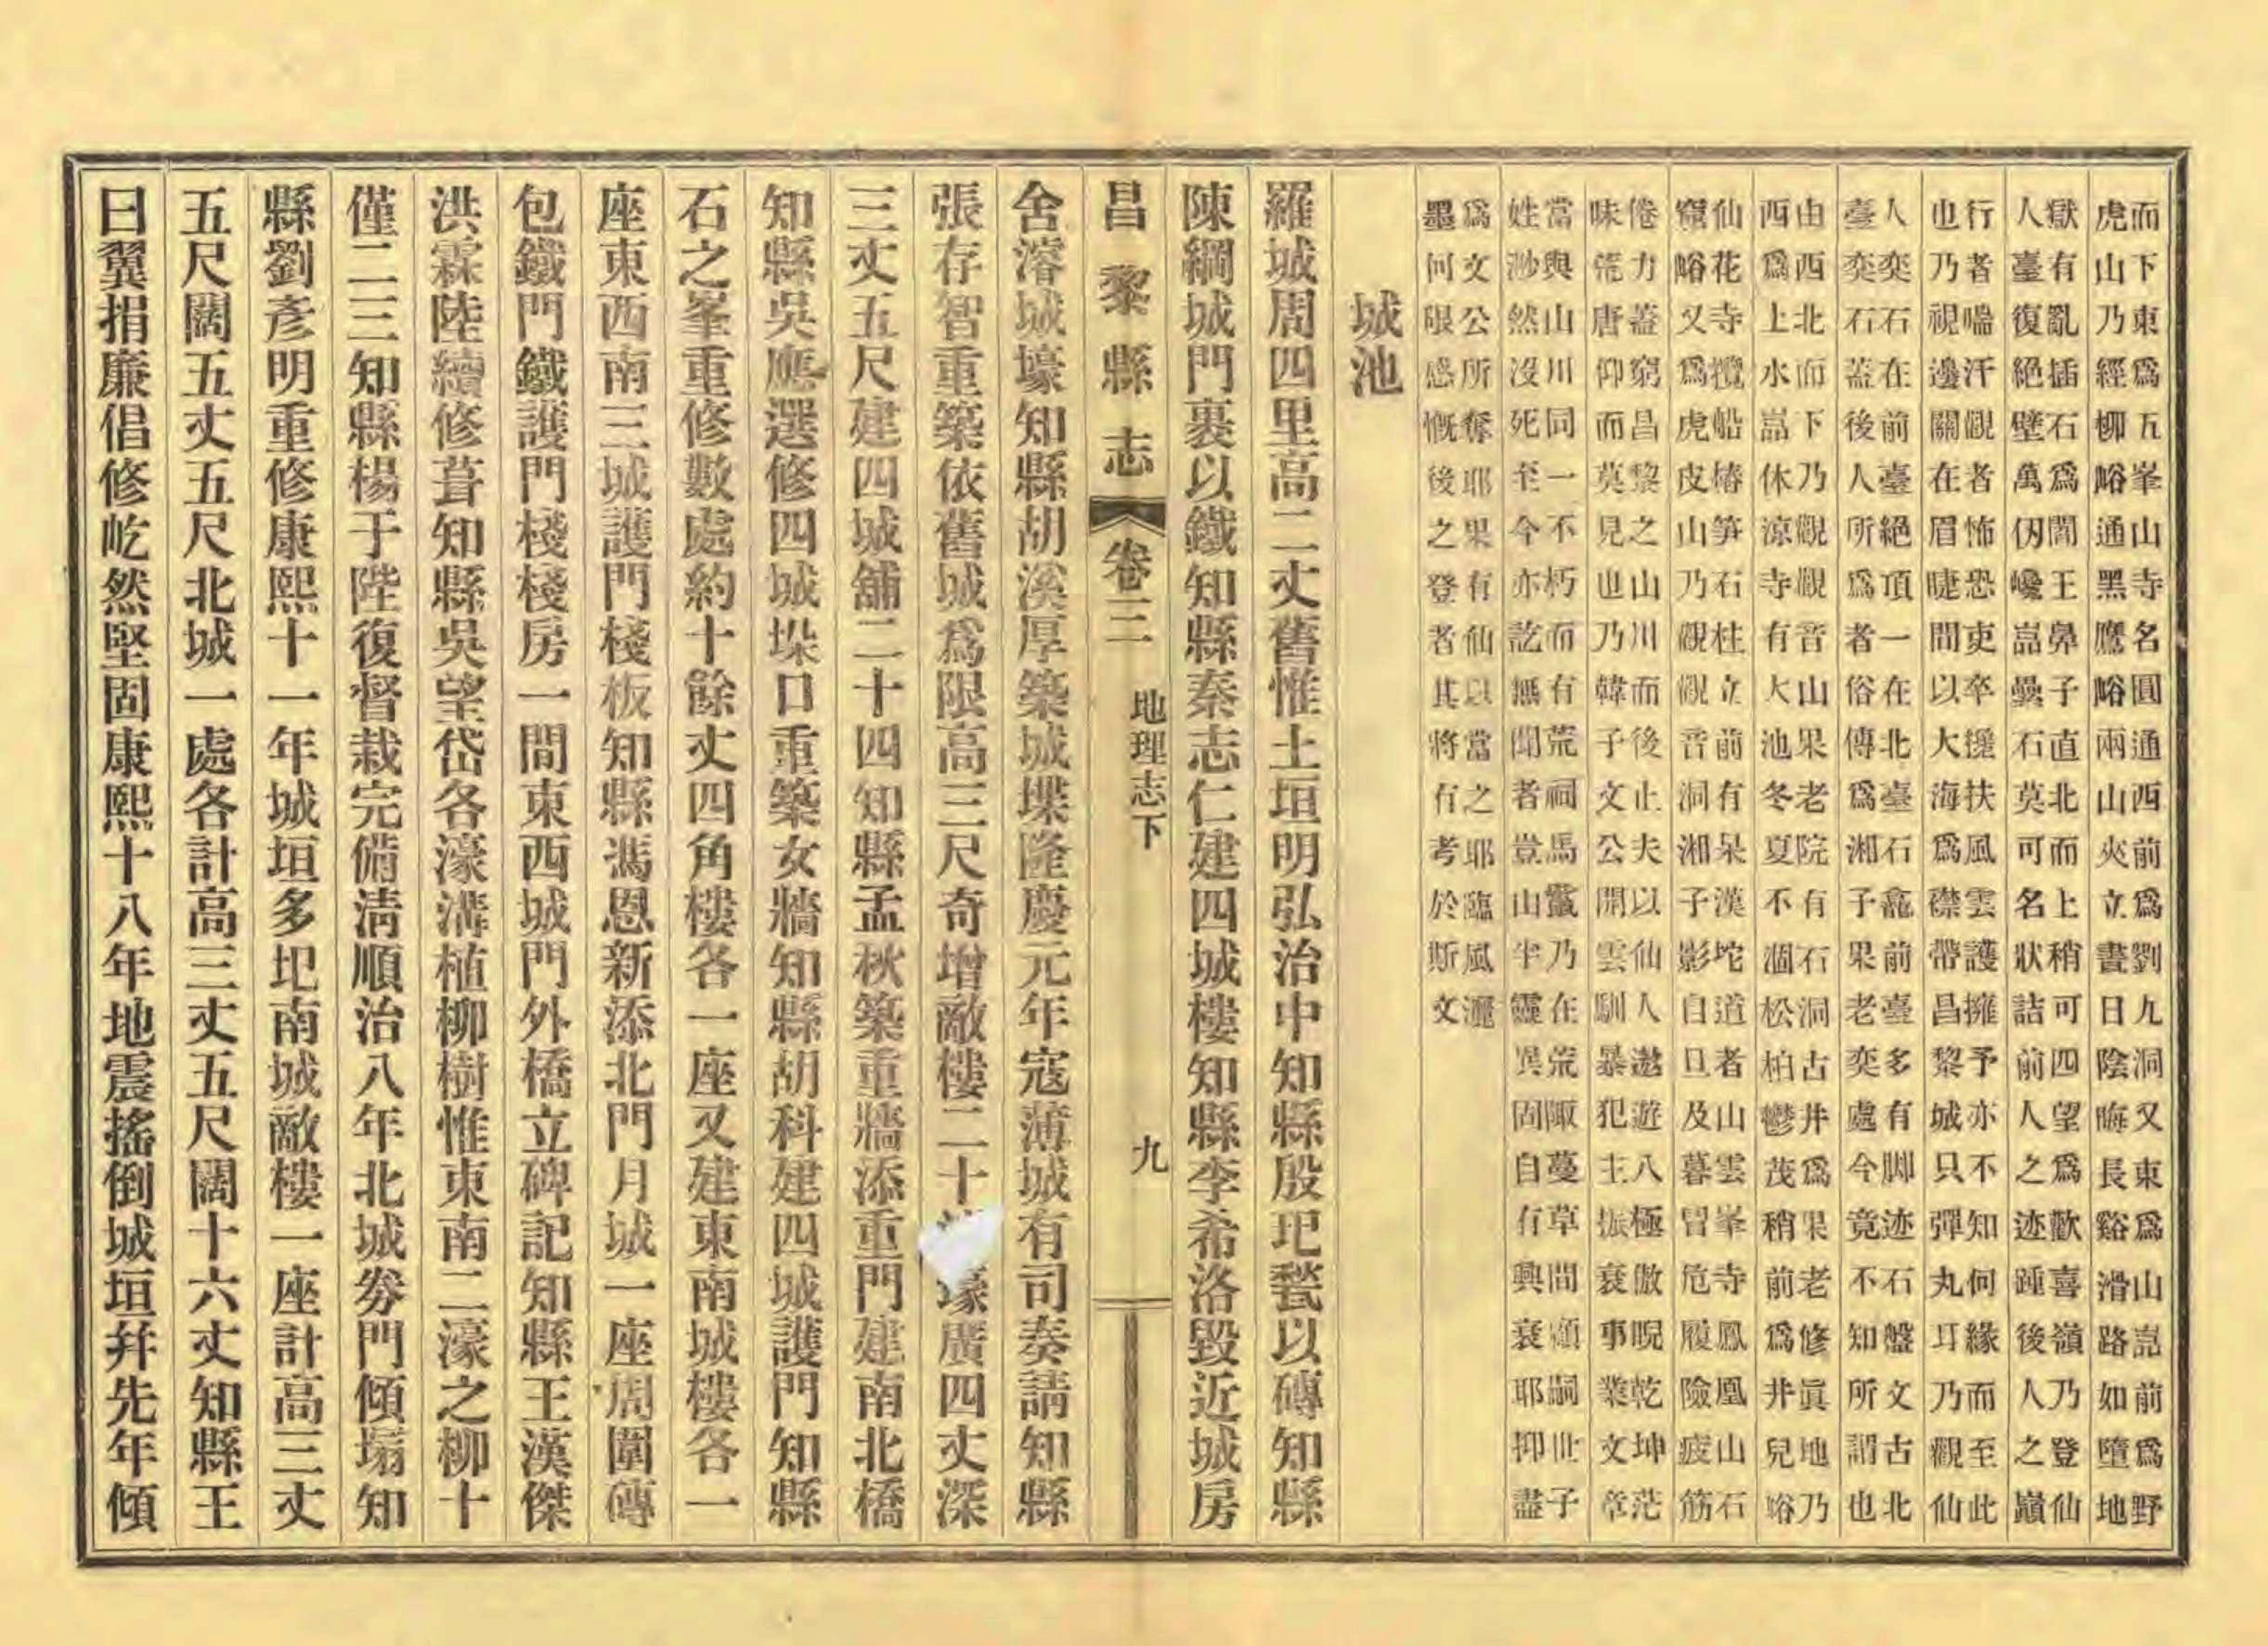 而下東爲五峯山寺名圓通西前爲劉九洞又東爲山嵓前爲野
虎山乃經柳峪通黑鷹峪兩山夾立晝日陰晦長谿滑路如墮地
獄有亂插石爲閻王鼻子直北而上稍可四望爲歡喜嶺乃登仙
人臺復絕壁萬仞巉嵓疊石莫可名狀詰前人之迹踵後人之巔
行者喘汗觀者怖恐吏卒援扶風雲護擁予亦不知何緣而至此
也乃視邊關在眉睫間以大海爲襟帶昌黎城只彈丸耳乃觀仙
人奕石在前臺絕頂一在北臺石龕前臺多有脚迹石盤文古北
臺奕石蓋後人所爲者俗傳爲湘子果老奕處今竟不知所謂也
由西北而下乃觀觀音山果老院有石洞古井爲果老修眞地乃
西爲上水嵓休涼寺有大池冬夏不涸松柏鬱茂稍前爲井兒峪
仙花寺攬船椿笋石柱立前有杲漢坨道者山雲峯寺鳳凰山石
窟峪又爲虎皮山乃觀觀音洞湘子影自旦及暮冒危履險疲筋
倦力蓋窮昌黎之山川而後止夫以仙人遨遊八極傲睨乾坤茫
味荒唐仰而莫見也乃韓子文公開雲馴暴犯主振衰事業文章
當與山川同一不朽而有荒祠馬鬣乃在荒陬蔓草間頽嗣世子
姓渺然沒死至今亦訖無聞者豈山半靈異固自有興衰耶抑盡
爲文公所奪耶果有仙以當之耶臨風灑
墨何限感慨後之登者其將有考於斯文
城池
羅城周四里高二丈舊惟土垣明弘治中知縣殷玘甃以磚知縣
陳綱城門裹以鐵知縣秦志仁建四城樓知縣李希洛毀近城房
昌黎縣志 卷三 地理志下 九
舍濬城壕知縣胡溪厚築城堞隆慶元年寇薄城有司奏請知縣
張存智重築依舊城爲限高三尺奇增敵樓二十壕廣四丈深
三丈五尺建四城舖二十四知縣孟秋築重牆添重門建南北橋
知縣吳應選修四城垛口重築女牆知縣胡科建四城護門知縣
石之峯重修數處約十餘丈四角樓各一座又建東南城樓各一
座東西南三城護門棧板知縣馮恩新添北門月城一座周圍磚
包鐵門鐵護門棧棧房一間東西城門外橋立碑記知縣王漢傑
洪霖陸續修葺知縣吳望岱各濠溝植柳樹惟東南二濠之柳十
僅二三知縣楊于陛復督栽完備清順治八年北城劵門傾塌知
縣劉彥明重修康熙十一年城垣多圯南城敵樓一座計高三丈
五尺闊五丈五尺北城一處各計高三丈五尺闊十六丈知縣王
曰翼捐廉倡修屹然堅固康熙十八年地震搖倒城垣幷先年傾